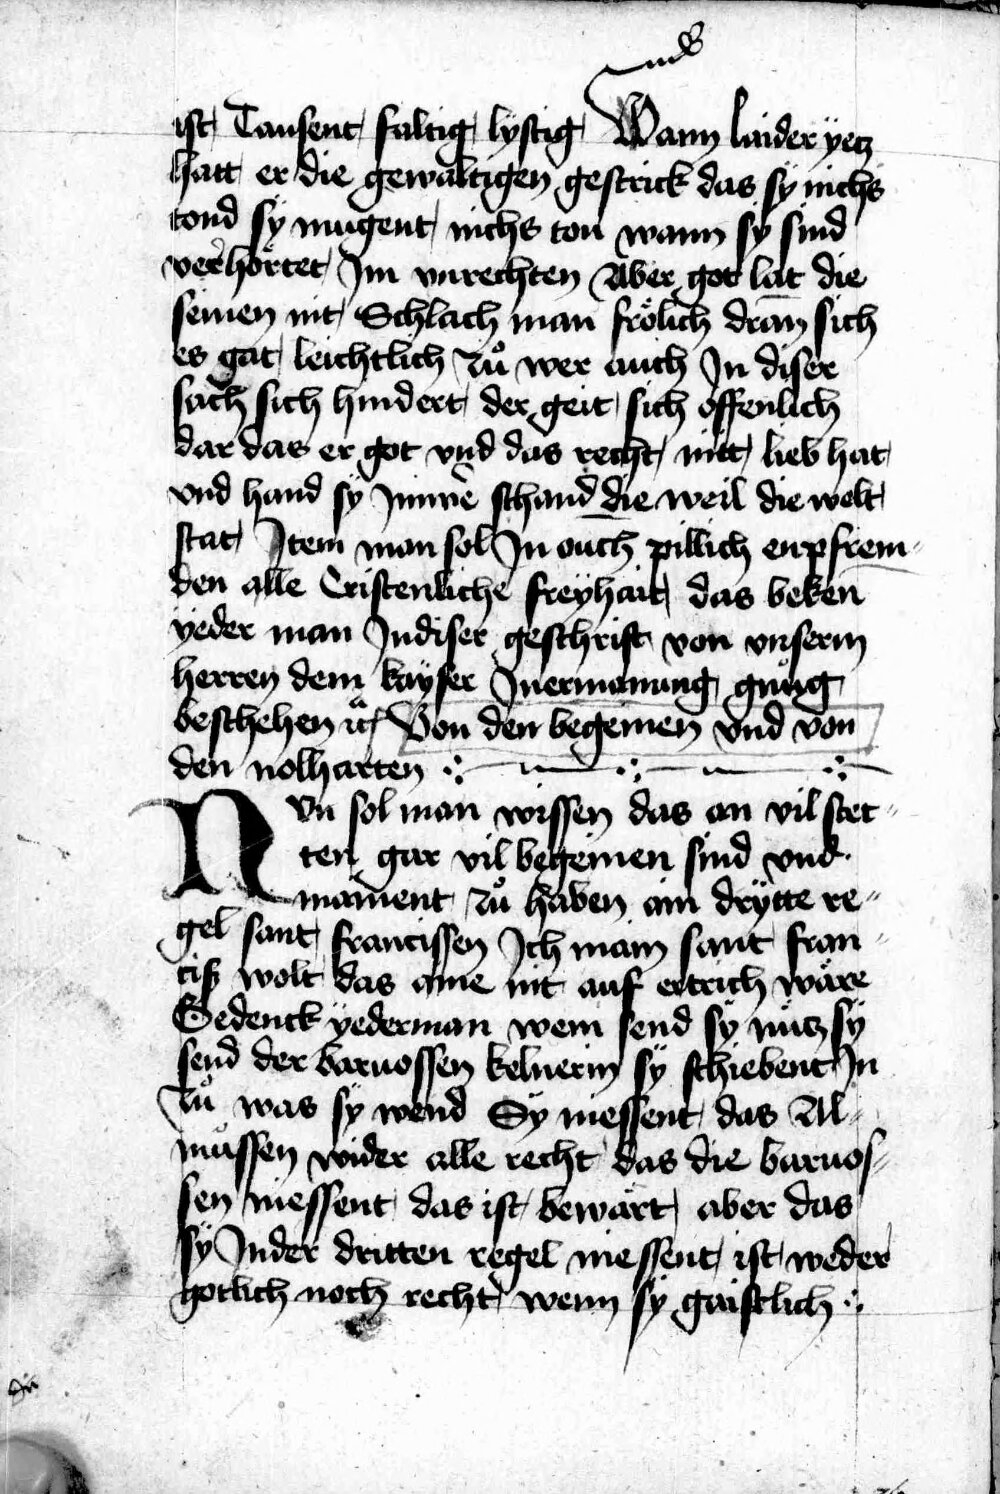 ist Tausent faltig lystig Wann laider yetz
hatt er die gewaltigen gestrick das sÿ nichs
tond sÿ mugent nichs ton wann sÿ sind
verhörtet Im vnrechten Aber got lat die
seinen nit Schlach man frölich dran sich
es gat leichtlich zů wer auch In diser
sach sich hindert der geit sich offenlich
dar das er got vnd das recht nitt lieb hat
vnd hand sÿ Jmmē schand die weil die welt
stat Jtem man sol Jn ouch pillich enpfrem-
den alle Cristenliche freÿhait das beken
yeder man Jndiser geschrift von vnserm
herren dem kayser Jnermanung gnůg
beschehen ꝛc Von den beginen vnd von
den nolharten
NVn sol man wissen das an vil stet-
ten gar vil beginen sind vnd
mainent zů haben ain drytte re-
gel sant francissen Ich main sant fran-
ciß wolt das aine nit auf ertrich wäre
Gedenck yederman wem send sÿ nütz sÿ
send der baruossen kelnerin sÿ schiebent Jn
zů was sÿ wend Sÿ niessent das Al-
můssen wider alle recht das die baruos-
sen niessent das ist bewärt aber das
sÿ Jnder dritten regel niessent ist weder
gotlich noch recht wenn sÿ gaistlich